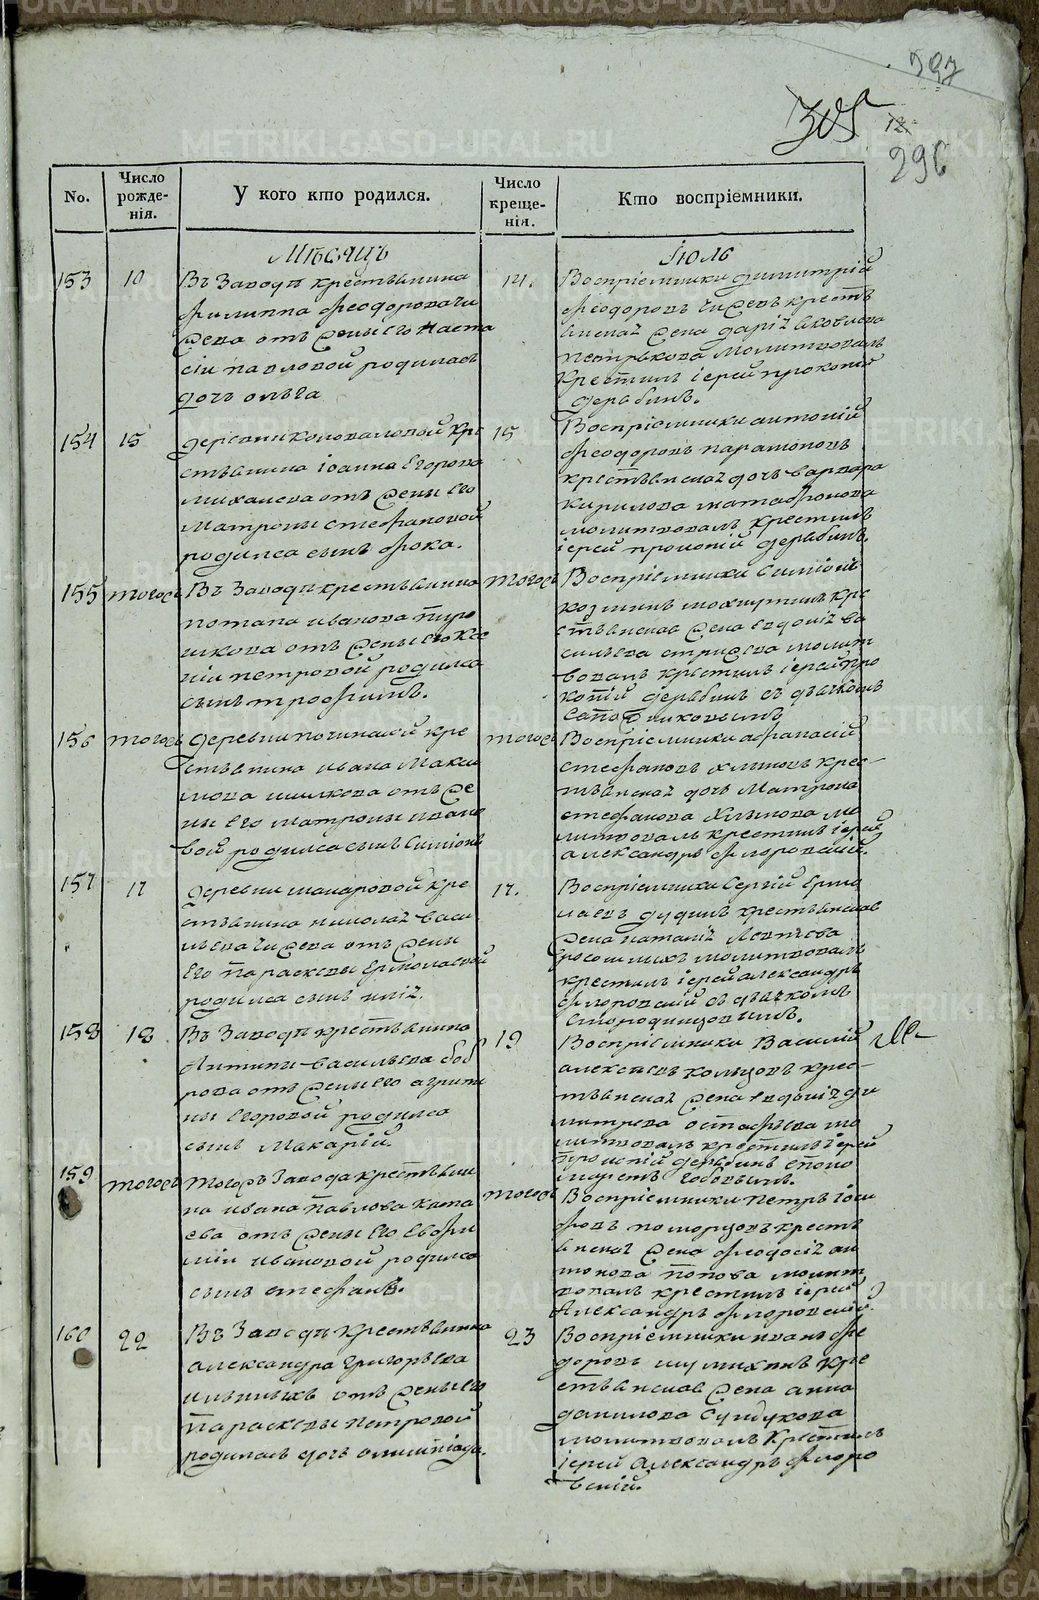 297
305
12
296
No.
Число рожде-нія.
У кого кто родился.
Число креще-нія.
Кто воспріемники.
Мѣсяцъ
Іюль
153
10
Въ Заводѣ крестьянина
Филиппа Феодорова Чи
жева отъ жены его Наста
сіи Павловой родилась
дочь Ольга
14.
Воспріемники Димитрій
Феодоровъ Чижевъ крестъ
янская жена Дарія Яковлева
Петрькова молитвовалъ
Крестилъ іерей Прокопій
Дерябинъ.
154
15
деревни Коноваловой кре
стьянина Іоанна Егорова
Михалева отъ жены его
Матроны Стефановой
родился сынъ Фока.
15
Воспріемники Антоній
Феодоровъ Парамоновъ
крестьянская дочь Варвара
Кирилова
молитвовалъ крестилъ
іерей Прокопій Дерябинъ.
155
тогожъ
Въ Заводѣ крестьянина
Потапа Иванова Пиро
шкова отъ жены его Ксе
ніи Петровой родился
сынъ Трофимъ.
тогожъ
Воспріемники Симіонъ
Козминъ кре
стьянская жена Евдокія Ва
сильева молит
вовалъ крестилъ іерей Про
копій Дерябинъ съ дьячкомъ
Сапожниковымъ
156
тогожъ
деревни Починской кре
стьянина Ивана Макси
мова Шилкова отъ же
ны его Матроны Ивано
вой родился сынъ Симіонъ
тогожъ
Воспріемники Афанасій
Стефановъ Хлыновъ крес-
тьянская дочь Матрона
Стефанова Хлынова мо
литвовалъ крестилъ іерей
Александръ Флоровскій.
157
17
деревни Макаровой кре
стьянина Николая Васи
льева Чижева отъ жены
его Параскевы Ермолаевой
родился сынъ Илія.
17.
Воспріемники Сергій Ермо
лаевъ Дудинъ крестьянская
жена Наталія Леонтьева
молитвовалъ
крестилъ іерей Александръ
Флоровскій съ дьячкомъ
Смородинцовымъ.
158
18
Въ Заводѣ крестьянина
Антипы Васильева Боб
рова отъ жены его Агрипи
ны Егоровой родился
сынъ Макарій
19
Воспріемники Василій
Алексѣевъ Кольцовъ крес-
тьянская жена Евдокія Ди
митрева Остафьева мо
литвовалъ крестилъ іерей
Прокопій Дерябинъ с поно
маремъ
159
тогожъ
Тогожъ Завода крестьяни
на Ивана Павлова Ката
ева отъ жены его Евфи
міи Ивановой родился
сынъ Стефанъ.
тогожъ
Воспріемники Петръ Іоси
фовъ Поморцовъ крестъ
янская жена Феодосія Ан
тонова Попова молит
вовалъ крестилъ іерей
Александръ Флоровскій.
160
22
Въ Заводѣ крестьянина
Александра Григорьева
Ильиныхъ отъ жены его
Параскевы Петровой
родилась дочь Олимпіада.
23
Воспріемники Иванъ Фе
доровъ Шумихинъ кре
стьянская жена Анна
Данилова Сундукова
молитвовалъ Крестилъ
іерей Александръ Флоро
вскій.
METRIKI.GASO-URAL.RU